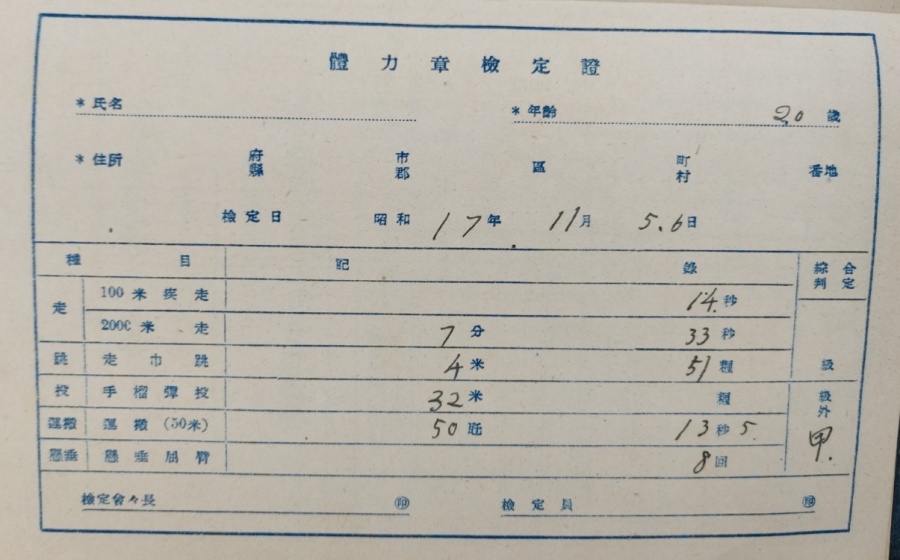 體力章檢定證
*氏名
*年齡 20 歲
*住所 府縣 市郡 區 町村 番地
檢定日 昭和 17年 11月 5.6日
種目 記錄 綜合判定
走 100米疾走 14.秒
2000米走 7分 33秒
跳 走巾跳 4米 51糎 級
投 手榴彈投 32米 糎 級外
運搬 運搬(50米) 50瓩 13秒5. 甲.
懸垂 懸垂屈臂 8回
檢定會々長 ㊞ 檢定員 ㊞